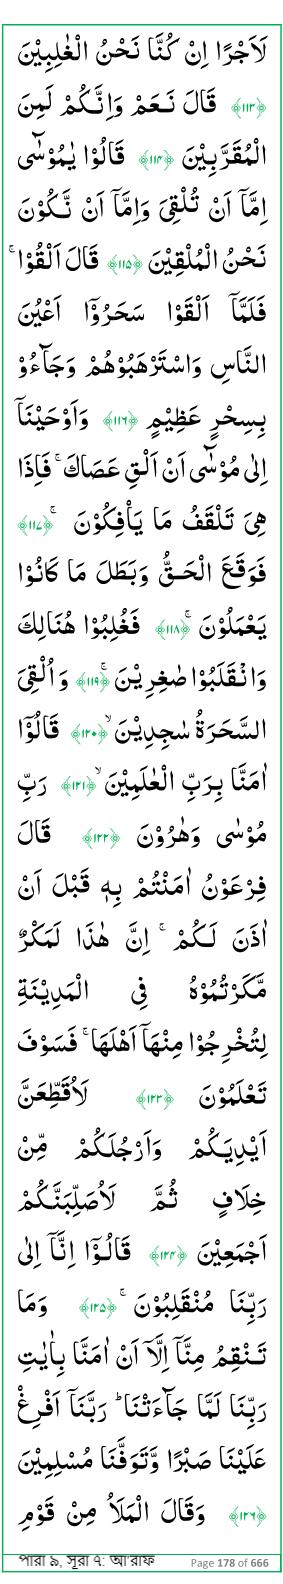 لَاَجْرًا اِنْ كُنَّا نَحْنُ الْغٰلِبِيْنَ
﴿۱۱۳﴾ قَالَ نَعَمْ وَاِنَّكُمْ لَمِنَ
الْمُقَرَّبِيْنَ ﴿۱۱۴﴾ قَالُوْا يٰمُوْسٰٓى
اِمَّاۤ اَنْ تُلْقِىَ وَاِمَّاۤ اَنْ نَّكُوْنَ
نَحْنُ الْمُلْقِيْنَ ﴿۱۱۵﴾ قَالَ اَلْقُوْا ۚ
فَلَمَّاۤ اَلْقَوْا سَحَرُوْۤا اَعْيُنَ
النَّاسِ وَاسْتَرْهَبُوْهُمْ وَجَآءُوْ
بِسِحْرٍ عَظِيْمٍ ﴿۱۱۶﴾ وَاَوْحَيْنَاۤ
اِلٰى مُوْسٰٓى اَنْ اَلْقِ عَصَاكَ ۚ فَاِذَا
هِىَ تَلْقَفُ مَا يَاْفِكُوْنَ ۚ ﴿۱۱۷﴾
فَوَقَعَ الْحَقُّ وَبَطَلَ مَا كَانُوْا
يَعْمَلُوْنَ ۚ ﴿۱۱۸﴾ فَغُلِبُوْا هُنَالِكَ
وَانْقَلَبُوْا صٰغِرِيْنَ ۚ ﴿۱۱۹﴾ وَاُلْقِىَ
السَّحَرَةُ سٰجِدِيْنَ ۙ ﴿۱۲۰﴾ قَالُوْۤا
اٰمَنَّا بِرَبِّ الْعٰلَمِيْنَ ۙ ﴿۱۲۱﴾ رَبِّ
مُوْسٰى وَهٰرُوْنَ ﴿۱۲۲﴾ قَالَ
فِرْعَوْنُ اٰمَنْتُمْ بِهٖ قَبْلَ اَنْ
اٰذَنَ لَـكُمْ ۚ اِنَّ هٰذَا لَمَكْرٌ
مَّكَرْتُمُوْهُ فِى الْمَدِيْنَةِ
لِتُخْرِجُوْا مِنْهَاۤ اَهْلَهَا ۚ فَسَوْفَ
تَعْلَمُوْنَ ﴿۱۲۳﴾ لَاُقَطِّعَنَّ
اَيْدِيَكُمْ وَاَرْجُلَكُمْ مِّنْ
خِلَافٍ ثُمَّ لَاُصَلِّبَنَّكُمْ
اَجْمَعِيْنَ ﴿۱۲۴﴾ قَالُـوْۤا اِنَّاۤ اِلٰى
رَبِّنَا مُنْقَلِبُوْنَ ۚ ﴿۱۲۵﴾ وَمَا
تَـنْقِمُ مِنَّاۤ اِلَّاۤ اَنْ اٰمَنَّا بِاٰيٰتِ
رَبِّنَا لَمَّا جَآءَتْنَا ؕ رَبَّنَاۤ اَفْرِغْ
عَلَيْنَا صَبْرًا وَّتَوَفَّنَا مُسْلِمِيْنَ
﴿۱۲۶﴾ وَقَالَ الْمَلَاُ مِنْ قَوْمِ
পারা ৯, সূরা ৭: আ'রাফ Page 178 of 666